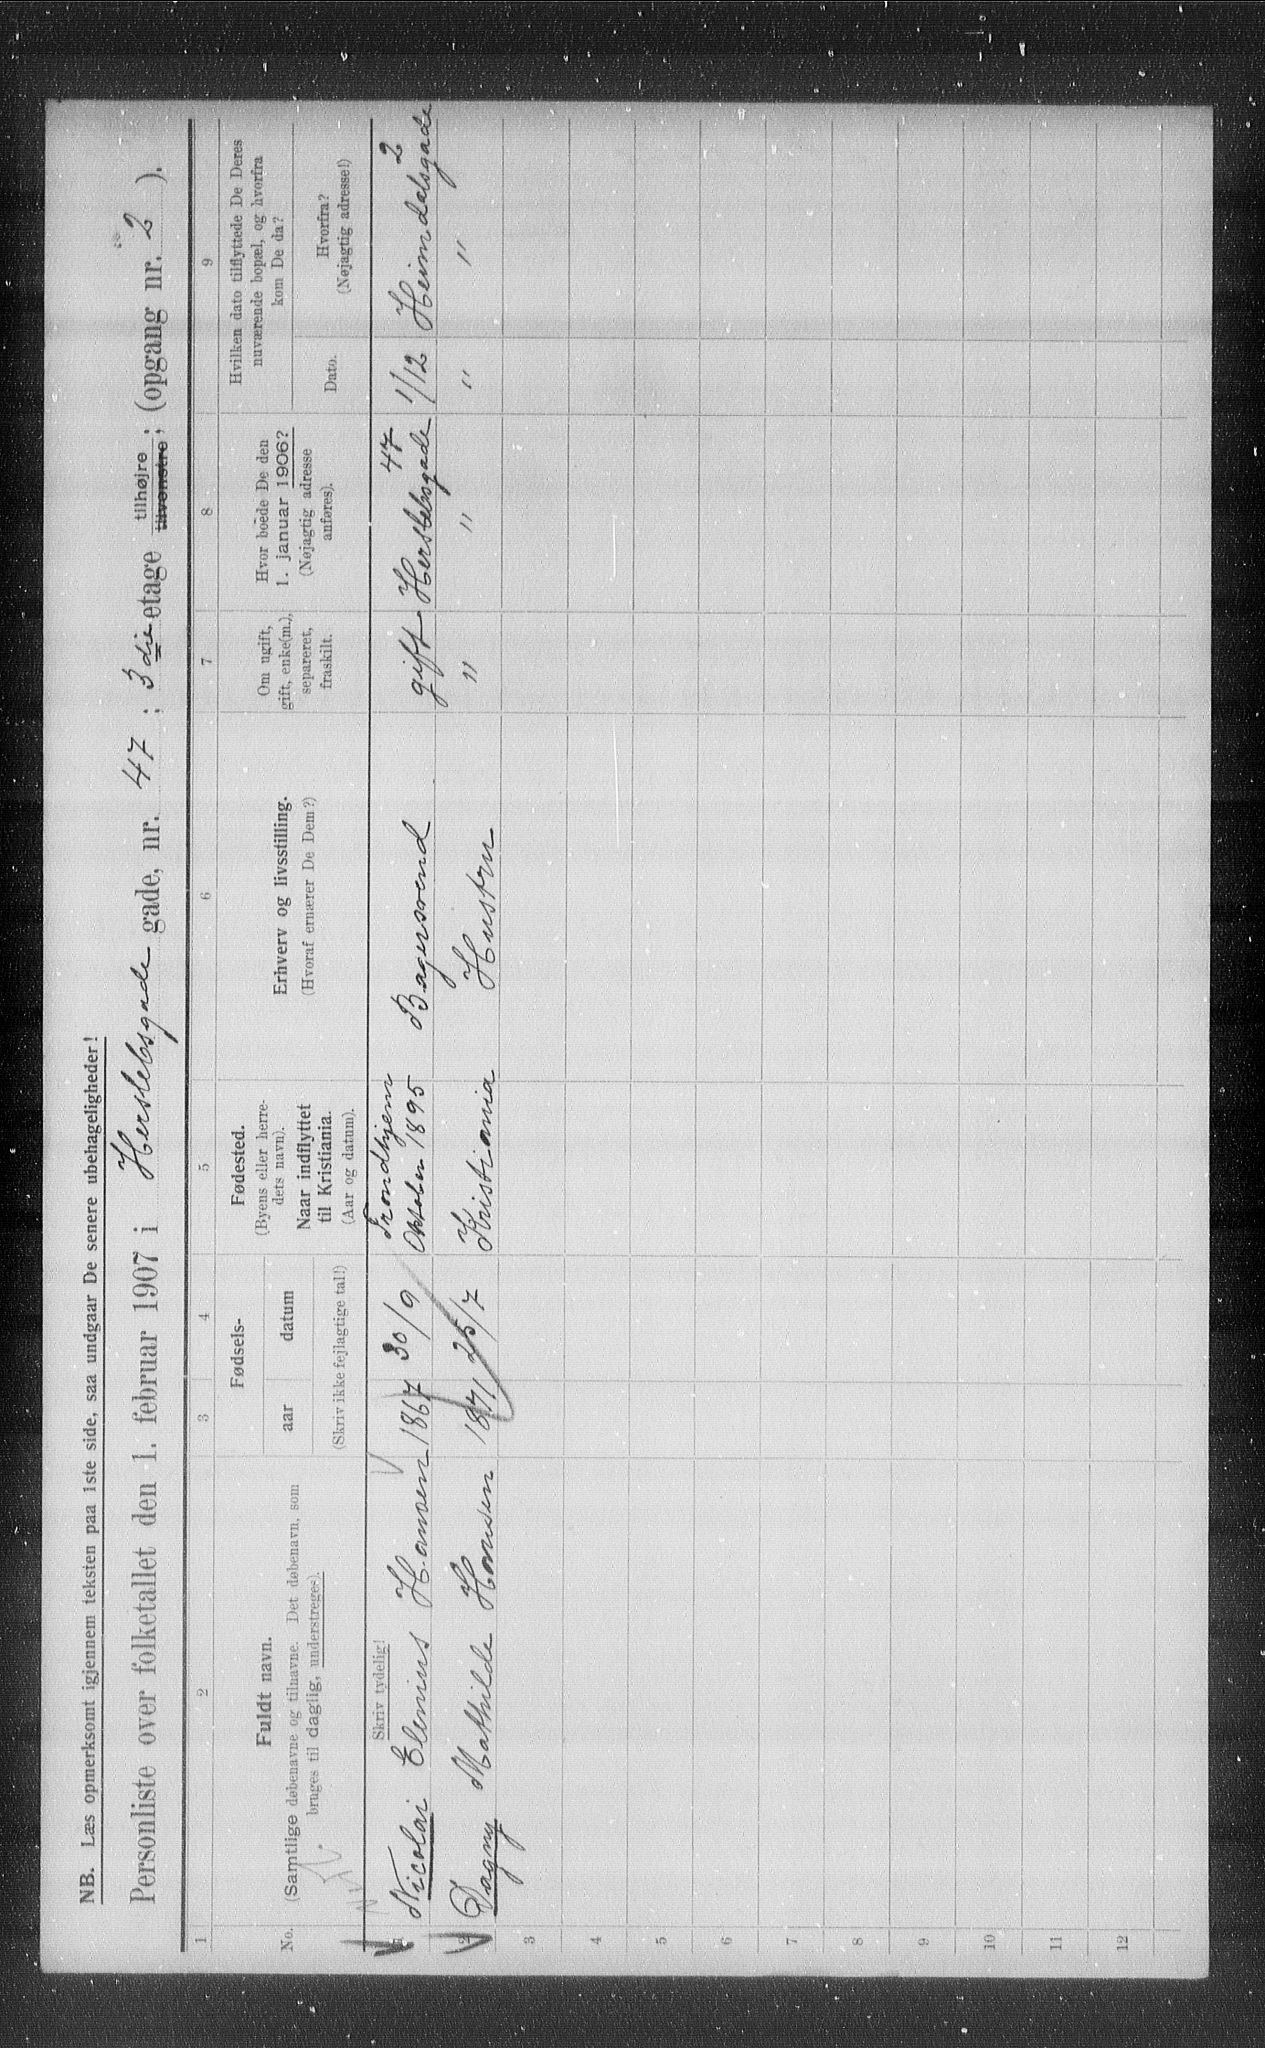 NB. Læs opmerksomt igjennem teksten paa 1ste side, saa undgaar De senere ubehageligheder!
Personliste over folketallet den 1. februar 1907 i Herslebsgade gade, nr. 47; 3die etage tilhøjre / tilvenstre; (opgang nr. 2).
1 2 3 4 5 6 7 8 9
No.
Fuldt navn.
(Samtlige døbenavne og tilnavne. Det døbenavn, som
bruges til daglig, understreges).
Fødsels-
aar datum
(Skriv ikke fejlagtige tal!)
Fødested.
(Byens eller herre-
dets navn).
Naar indflyttet
til Kristiania.
(Aar og datum).
Erhverv og livsstilling.
(Hvoraf ernærer De Dem?)
Om ugift,
gift, enke(m.),
separeret,
fraskilt.
Hvor boede De den
1. januar 1906?
(Nøjagtig adresse
anføres).
Hvilken dato tilflyttede De Deres
nuværende bopæl, og hvorfra
kom De da?
Dato.
Hvorfra?
(Nøjagtig adresse!)
Skriv tydelig!
1 Nicolai Elenius Hansen 1867 30/9 Trondhjem Oktober 1895 Bagersvend gift Herslebsgade 47 1/12 Heimdalsgade 2
2 Dagny Mathilde Hansen 1871 25/7 Kristiania Hustru " " " "
3
4
5
6
7
8
9
10
11
12